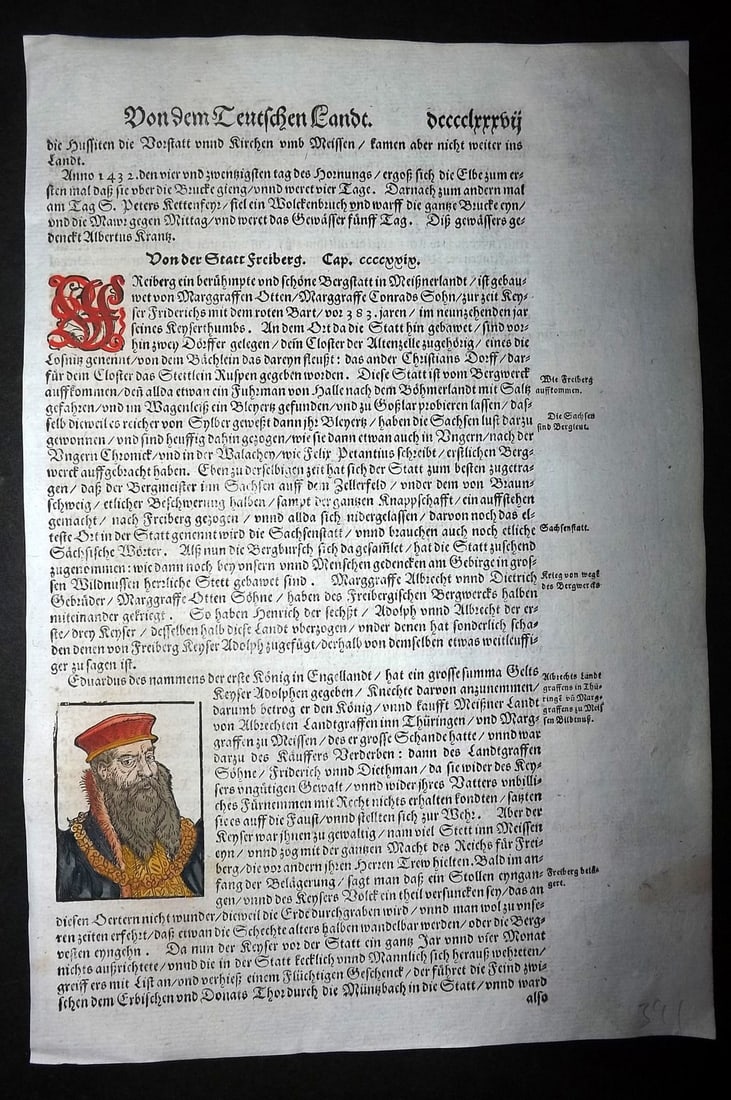 Von dem Teutschen Landt. dcccclxxxvij
die Hussiten die Vorstatt vnnd Kirchen vmb Meissen / kamen aber nicht weiter ins
Landt.
Anno 1432. den vier vnd zwentzigsten tag des Hornungs / ergoß sich die Elbe zum er-
sten mal daß sie vber die Brucke gieng / vnnd weret vier Tage. Darnach zum andern mal
am Tag S. Peters Kettenfeyr / fiel ein Wolckenbruch vnd warff die gantze Brucke eyn /
vnd die Mawr gegen Mittag / vnd weret das Gewässer fünff Tag. Diß gewässers ge-
denckt Albertus Krantz.
Von der Statt Freiberg. Cap. ccccxxix.
FReiberg ein berühmpte vnd schöne Bergstatt in Meißnerlandt / ist gebau-
wet von Marggraffen Otten / Marggraffe Conrads Sohn / zur zeit Key-
ser Friderichs mit dem roten Bart / vor 383. jaren / im neunzehenden jar
seines Keyserthumbs. An dem Ort da die Statt hin gebawet / sind vor-
hin zwey Dörffer gelegen / dein Closter der Altenzelle zugehörig / eines die
Losnitz genennt / von dem Bächlein das dareyn fleußt: das ander Christians Dorff / dar-
für dem Closter das Stettlein Ruspen gegeben worden. Diese Statt ist vom Bergwerck
auffkommen / deñ allda etwan ein Fuhrman von Halle nach dem Böhmerlandt mit Saltz
gefahren / vnd im Wagenleiß ein Bleyertz gefunden / vnd zu Goßlar probieren lassen / das-
selb dieweil es reicher von Sylber geweßt dann jhr Bleyertz / haben die Sachsen lust darzu
gewonnen / vnd sind heuffig dahin gezogen / wie sie dann etwan auch in Vngern / nach der
Vngern Chronick / vnd in der Walachey / wie Felix Petantius schreibt / erstlichen Berg-
werck auffgebracht haben. Eben zu derselbigen zeit hat sich der Statt zum besten zugetra-
gen / daß der Bergmeister inn Sachsen auff dem Zellerfeld / vnder dem von Braun-
schweig / etlicher Beschwerung halben / sampt der gantzen Knappschafft / ein auffstehen
gemacht / nach Freiberg gezogen / vnnd allda sich nidergelassen / darvon noch das el-
teste Ort in der Statt genennt wird die Sachsenstatt / vnnd brauchen auch noch etliche
Sächsische Wörter. Alß nun die Bergbursch sich da gesamlet / hat die Statt zusehend
zugenommen: wie dann noch bey vnsern vnnd Menschen gedencken am Gebirge in gros-
sen Wildnussen herrliche Stett gebawet sind. Marggraffe Albrecht vnnd Dietrich
Gebrüder / Marggraffe Otten Söhne / haben des Freibergischen Bergwercks halben
miteinander gekriegt. So haben Henrich der sechßt / Adolph vnnd Albrecht der er-
ste / drey Keyser / desselben halb diese Landt vberzogen / vnder denen hat sonderlich scha-
den denen von Freiberg Keyser Adolph zugefügt / derhalb von demselben etwas weitleuffi-
ger zu sagen ist.
Eduardus des nammens der erste König in Engellandt / hat ein grosse summa Gelts
Keyser Adolphen gegeben / Knechte darvon anzunemmen /
darumb betrog er den König / vnnd kaufft Meißner Landt
von Albrechten Landtgraffen inn Thüringen / vnd Marg-
graffen zu Meissen / des er grosse Schande hatte / vnnd war
darzu des Käuffers Verderben: dann des Landtgraffen
Söhne / Friderich vnnd Diethman / da sie wider des Key-
sers vngütigen Gewalt / vnnd wider jhres Vatters vnbilli-
ches Fürnemmen mit Recht nichts erhalten kondten / satzten
sie es auff die Faust / vnnd stellten sich zur Wehr. Aber der
Keyser war jhnen zu gewaltig / nam viel Stett inn Meissen
eyn / vnnd zog mit der gantzen Macht des Reichs für Frei-
berg / die vor andern jhren Herren Trew hielten. Bald im an-
fang der Belägerung / sagt man daß ein Stollen eyngan-
gen / vnnd des Keysers Volck ein theil versuncken sey / das an
diesen Oertern nicht wunder / dieweil die Erde durchgraben wird / vnnd man wol zu vnse-
ren zeiten erfehrt / daß etwan die Schechte alters halben wandelbar werden / oder die Berg-
vesten eyngehn. Da nun der Keyser vor der Statt ein gantz Jar vnnd vier Monat
nichts außrichtete / vnnd die in der Statt kecklich vnnd Mannlich sich herauß wehreten /
greiff ers mit List an / vnd verhieß einem Flüchtigen Geschenck / der führet die Feind zwi-
schen dem Erbischen vnd Donats Thor durch die Müntzbach in die Statt / vnnd ward
also
Wie Freiberg
auffkommen.
Die Sachsen
sind Bergleut.
Sachsenstatt.
Krieg von wegẽ
des Bergwercks
Albrechts Landt
graffens in Thü-
ringẽ vñ Marg-
graffens zu Meis
sen Bildtnuß.
Freiberg belä-
gert.
391